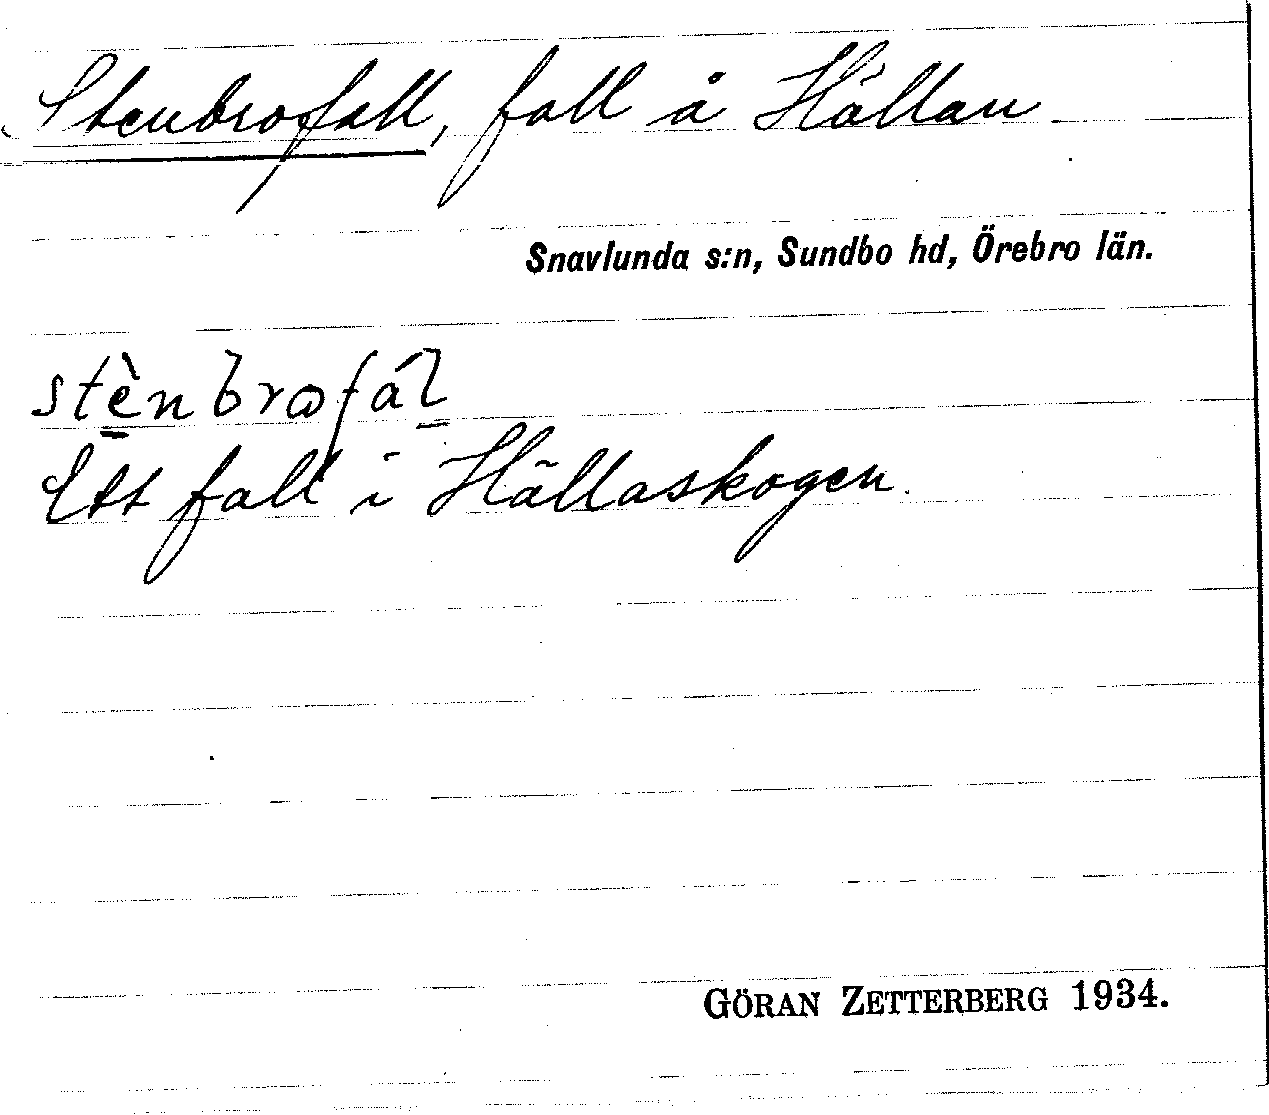 Stenbrofall, fall å Hällan
Snavlunda s:n, Sundbo hd, Örebro län.
stènbrofál
Ett fall i Hällaskogen.
GÖRAN ZETTERBERG 1934.